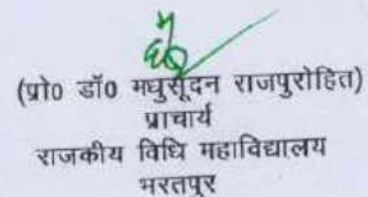 (प्रो0 डॉ0 मधुसूदन राजपुरोहित)
प्राचार्य
राजकीय विधि महाविद्यालय
भरतपुर